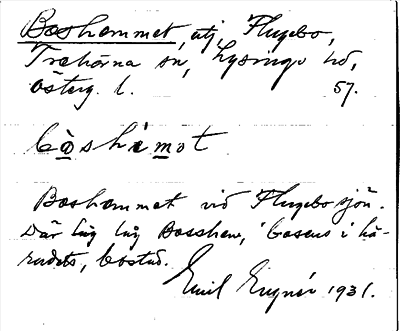 Boshammet, utj, Flugebo,
Trehörna sn, Lysings hd,
Österg. l. 57.
bòshámot
Boshammet vid Flugebosjön.
Där låg låg Bosshem, 'bosens i hä-
radets, bostad.
Emil Eugnér 1931.